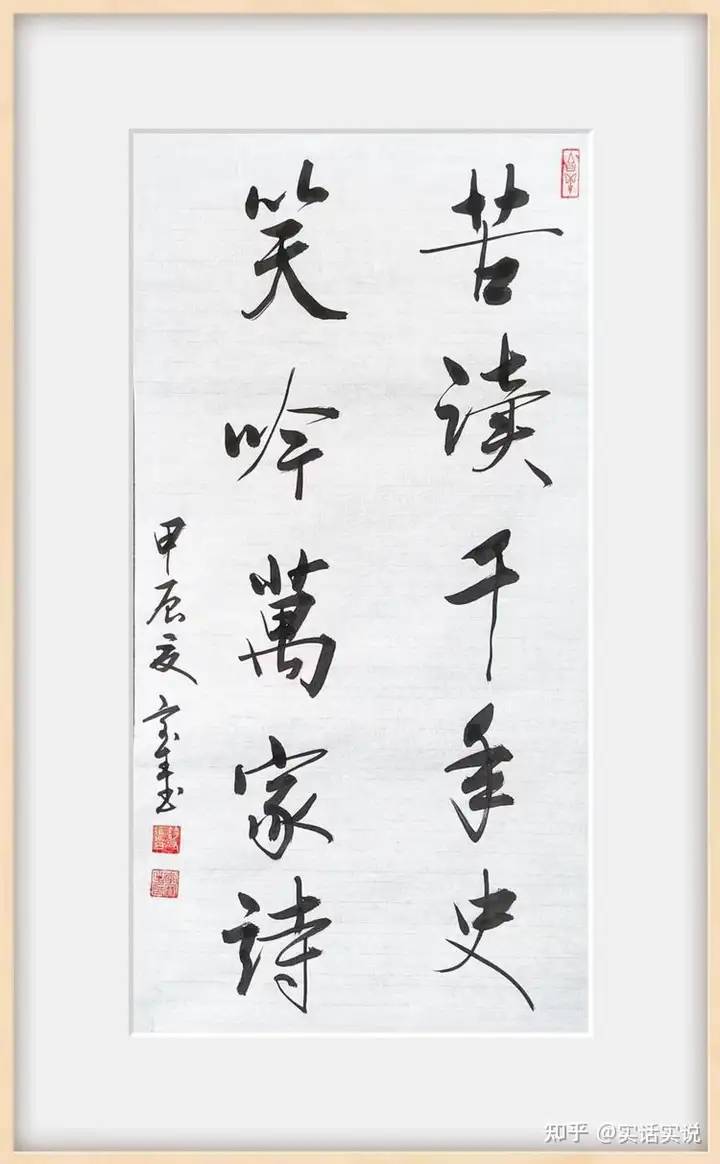 苦读千年史
笑吟萬家詩
甲辰夏
知乎 @实话实说